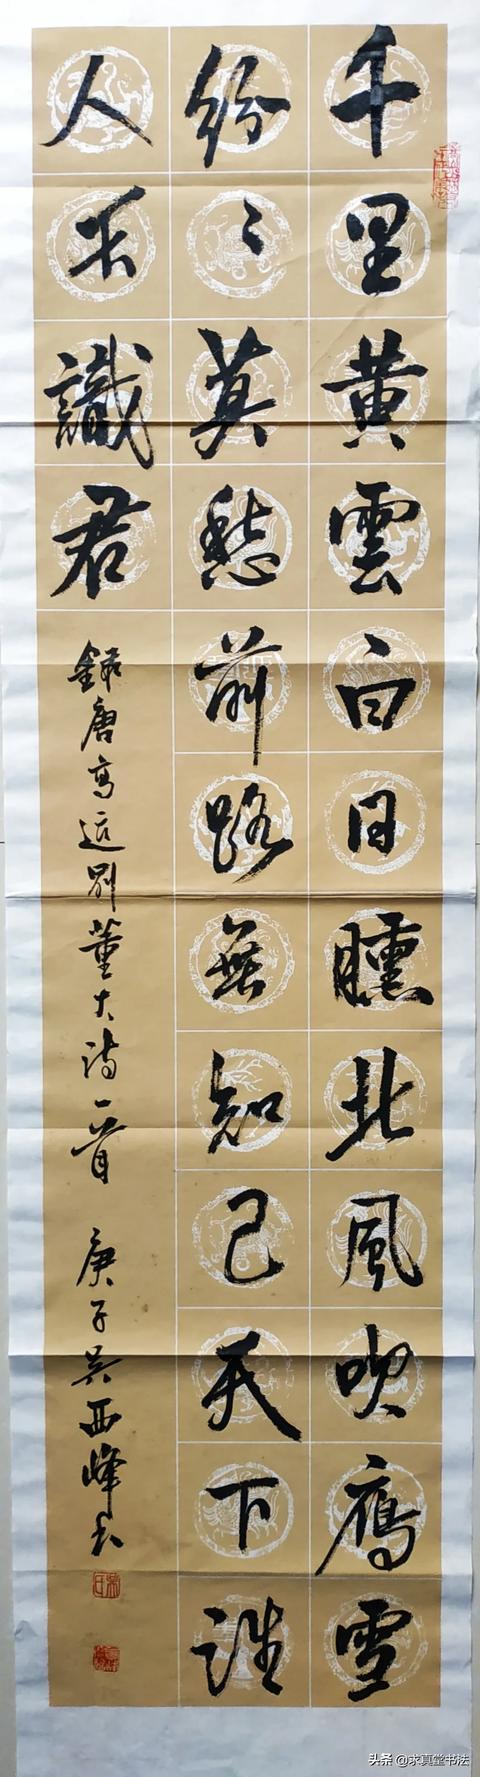 千里黄雲白日曛北風吹鴈雪
紛〻莫愁前路無知己天下誰
人不識君
錄唐高适別董大诗一首 庚子吴西峰书
头条 @求真堂书法